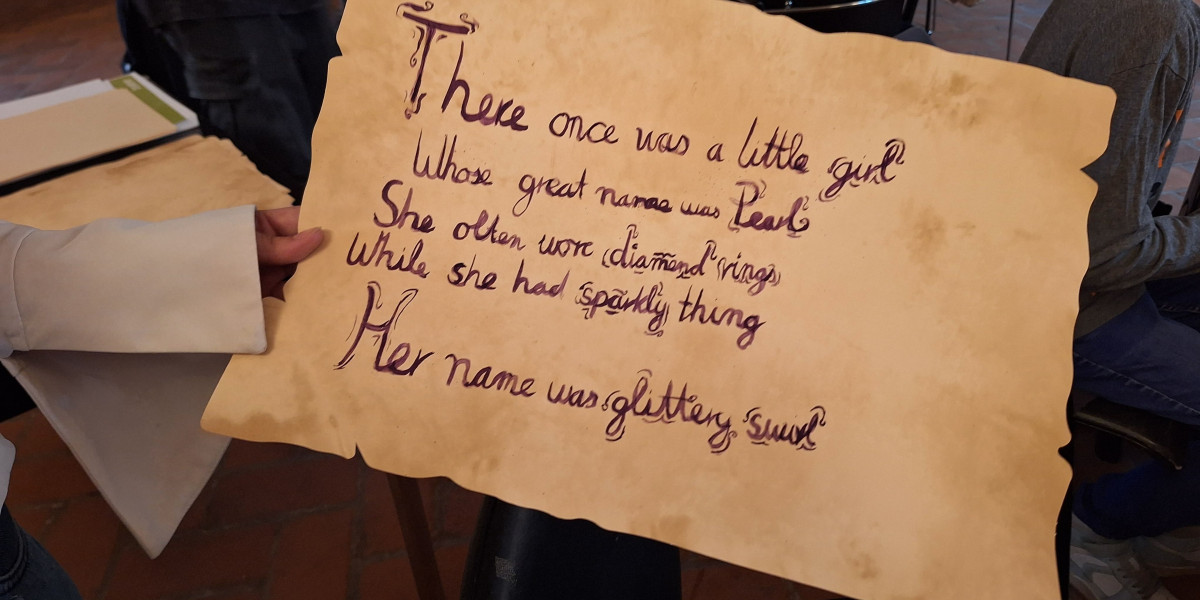 There once was a little girl
Whose great name was Pearl
She often wore diamond rings
While she had sparkly thing
Her name was glittery swirl